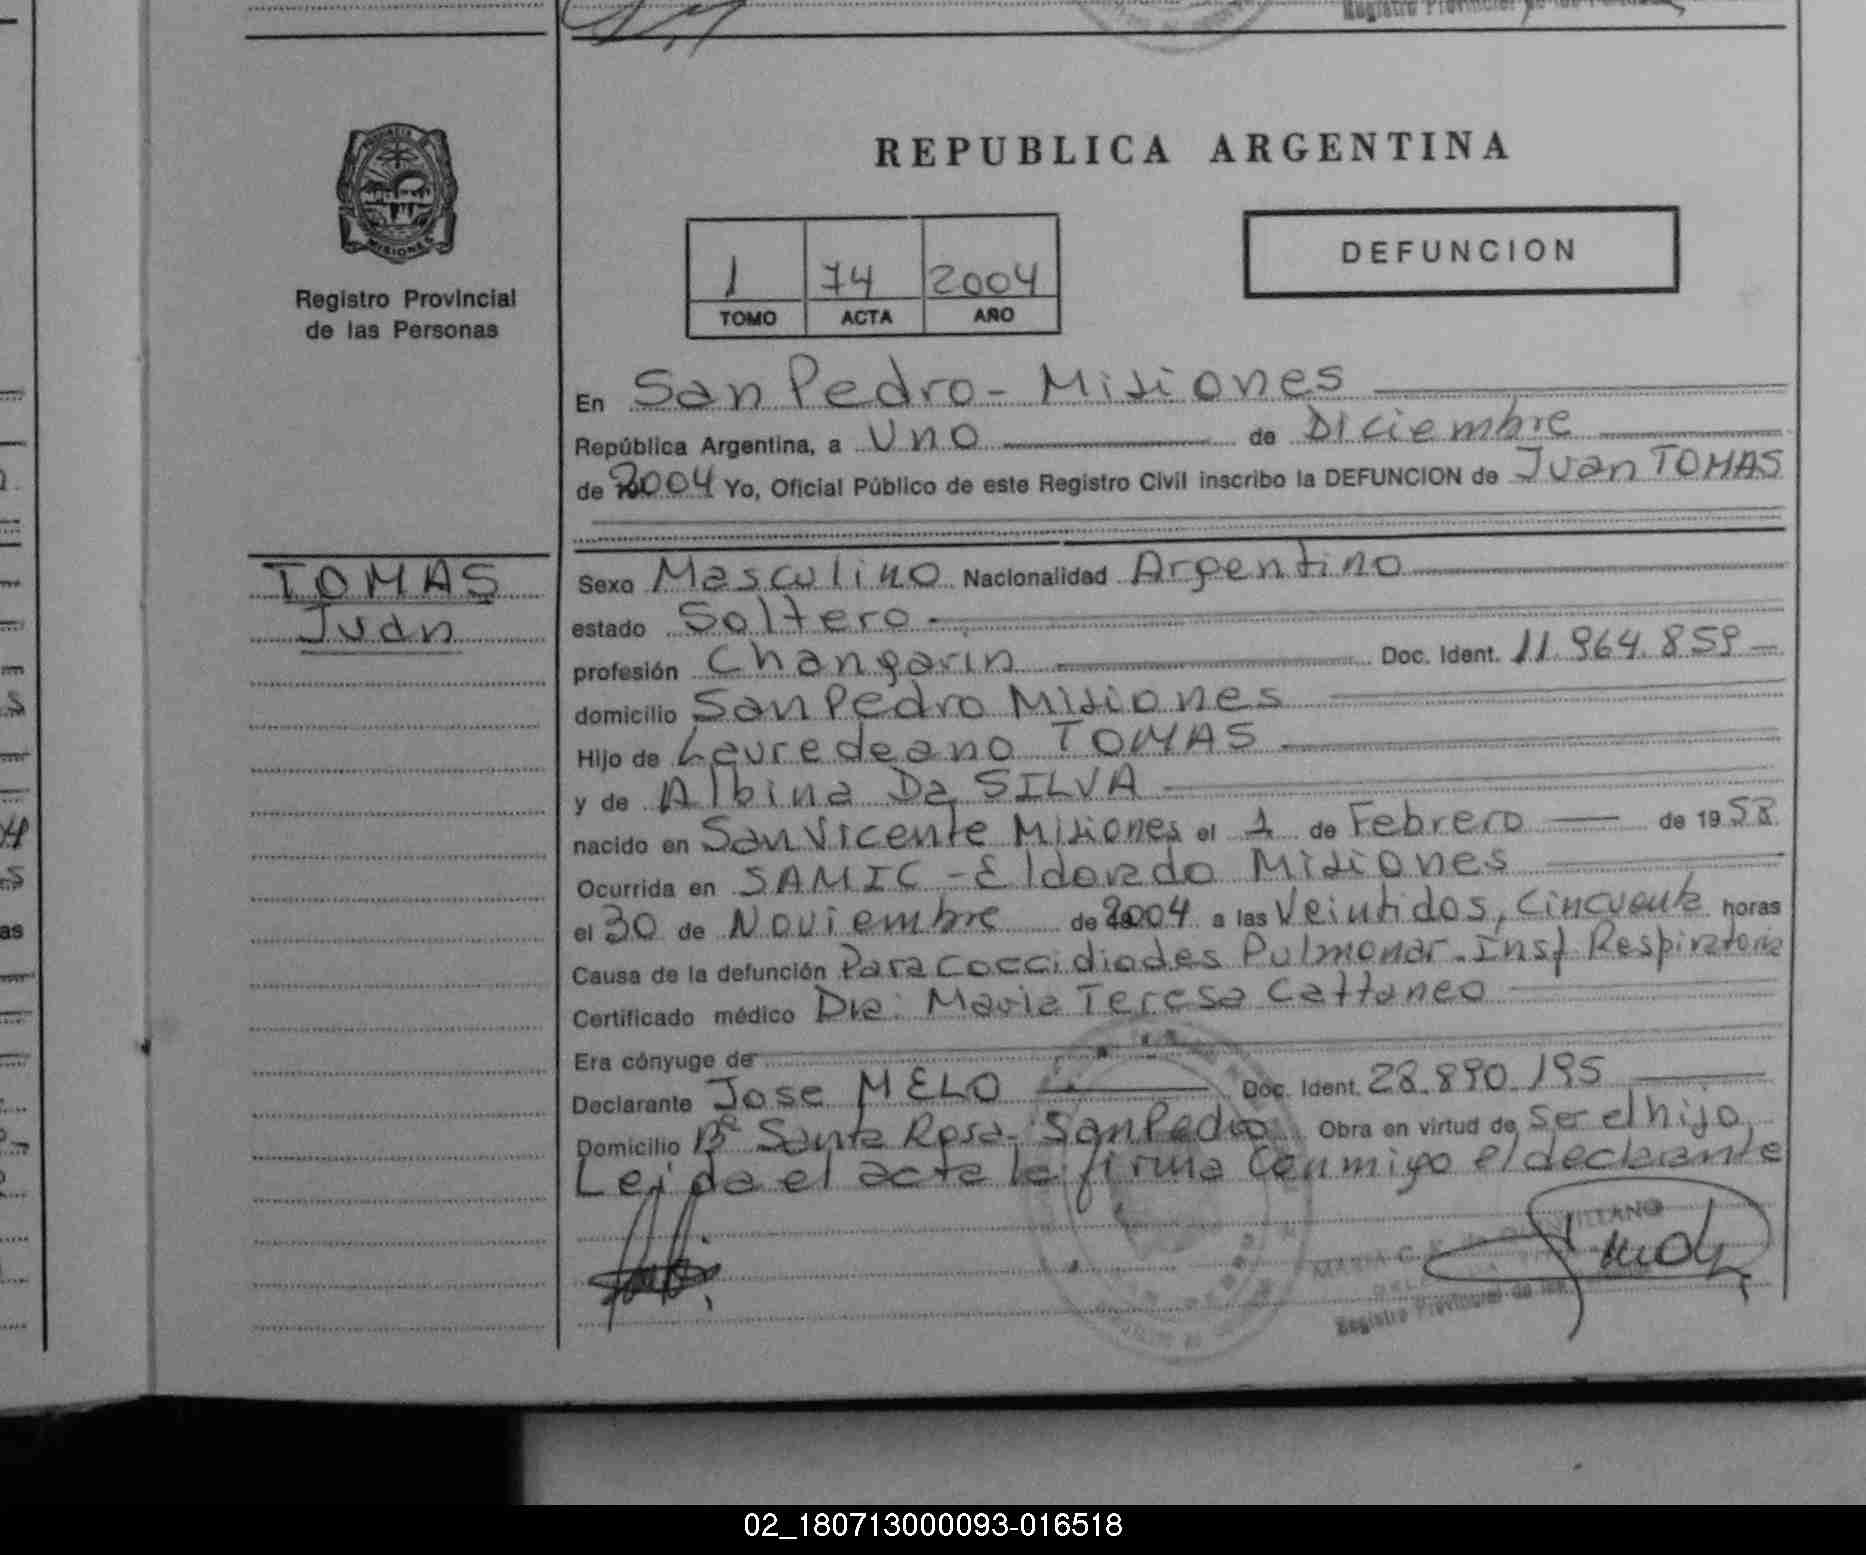 REPUBLICA ARGENTINA
DEFUNCION
Registro Provincial
de las Personas
MISIONES
1 74 2004
TOMO ACTA AÑO
En San Pedro - Misiones
República Argentina, a Uno de Diciembre
de 2004 Yo, Oficial Público de este Registro Civil inscribo la DEFUNCION de Juan TOMAS
TOMAS
Juan
Sexo Masculino Nacionalidad Argentino
estado Soltero
profesión Changarin Doc. Ident. 11.964.859
domicilio San Pedro Misiones
Hijo de Lauredeano TOMAS
y de Albina Da SILVA
nacido en San Vicente Misiones el 1 de Febrero de 1958
Ocurrida en SAMIC - Eldorado Misiones
el 30 de Noviembre de 2004 a las Veintidos, Cincuenta horas
Causa de la defunción Paracoccidiodes Pulmonar. Insf Respiratoria
Certificado médico Dra: Maria Teresa Cattaneo
Era cónyuge de
Declarante Jose MELO Doc. Ident. 28.890.195
Domicilio Bº Santa Rosa - San Pedro Obra en virtud de Ser el hijo
Leida el acta la firma Conmigo el declarante
Registro Provincial de las
02_180713000093-016518